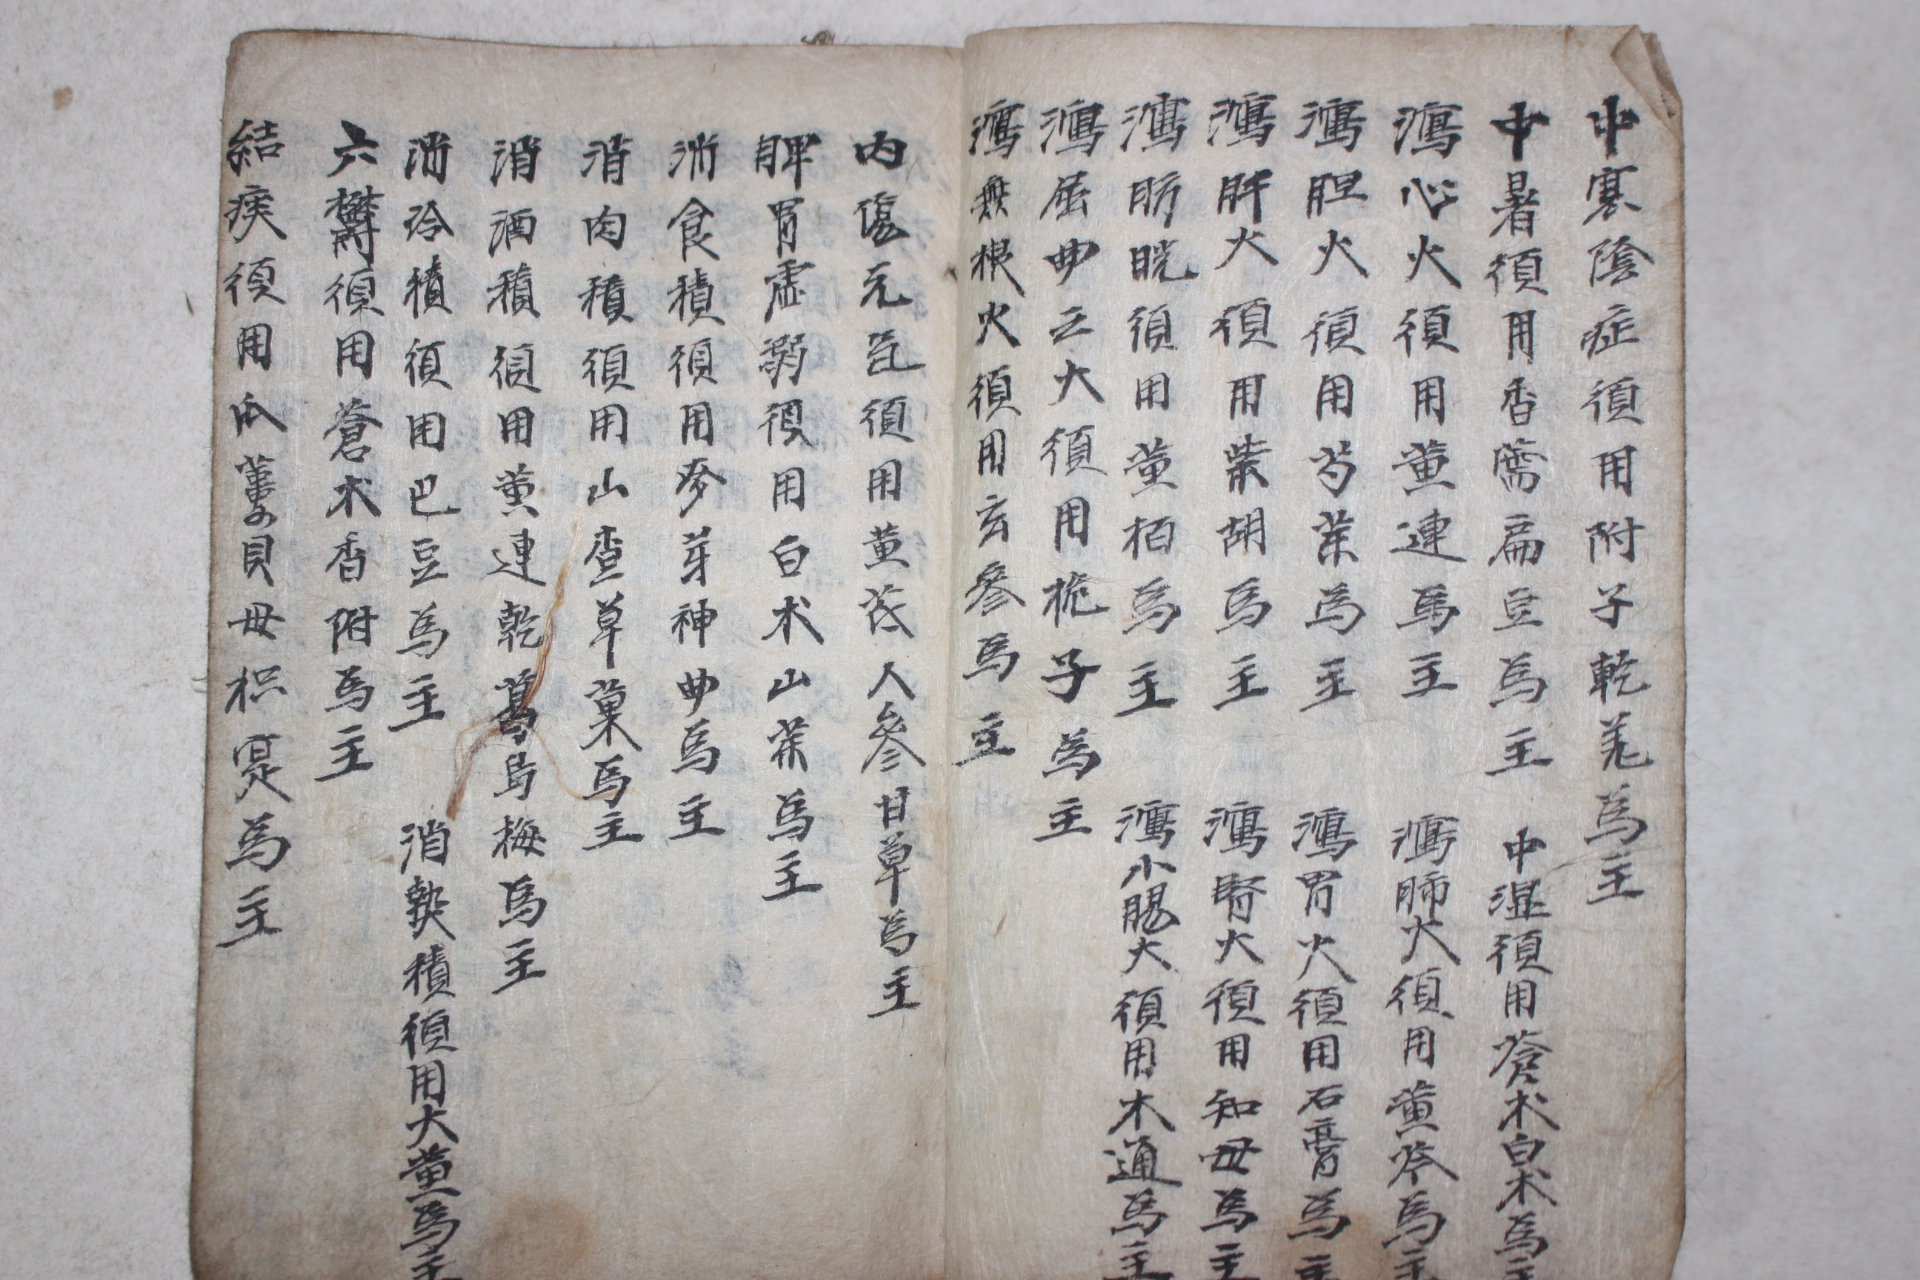 中寒陰症須用附子乾羌為主
中暑須用香薷扁豆為主 中濕須用蒼朮白朮為主
瀉心火須用黃連為主 瀉肺火須用黃芩為主
瀉胆火須用芍藥為主 瀉胃火須用石膏為主
瀉肝火須用紫胡為主 瀉腎火須用知母為主
瀉膀胱須用黃栢為主 瀉小腸火須用木通為主
瀉屈曲之火須用梔子為主
瀉無根火須用玄參為主
內傷元氣須用黃芪人參甘草為主
脾胃虛弱須用白朮山藥為主
消食積須用麥芽神曲為主
消肉積須用山查草菓為主
消酒積須用黃連乾葛烏梅為主
消冷積須用巴豆為主 消熱積須用大黃為主
六鬱須用蒼朮香附為主
結痰須用瓜蔞貝母枳實為主